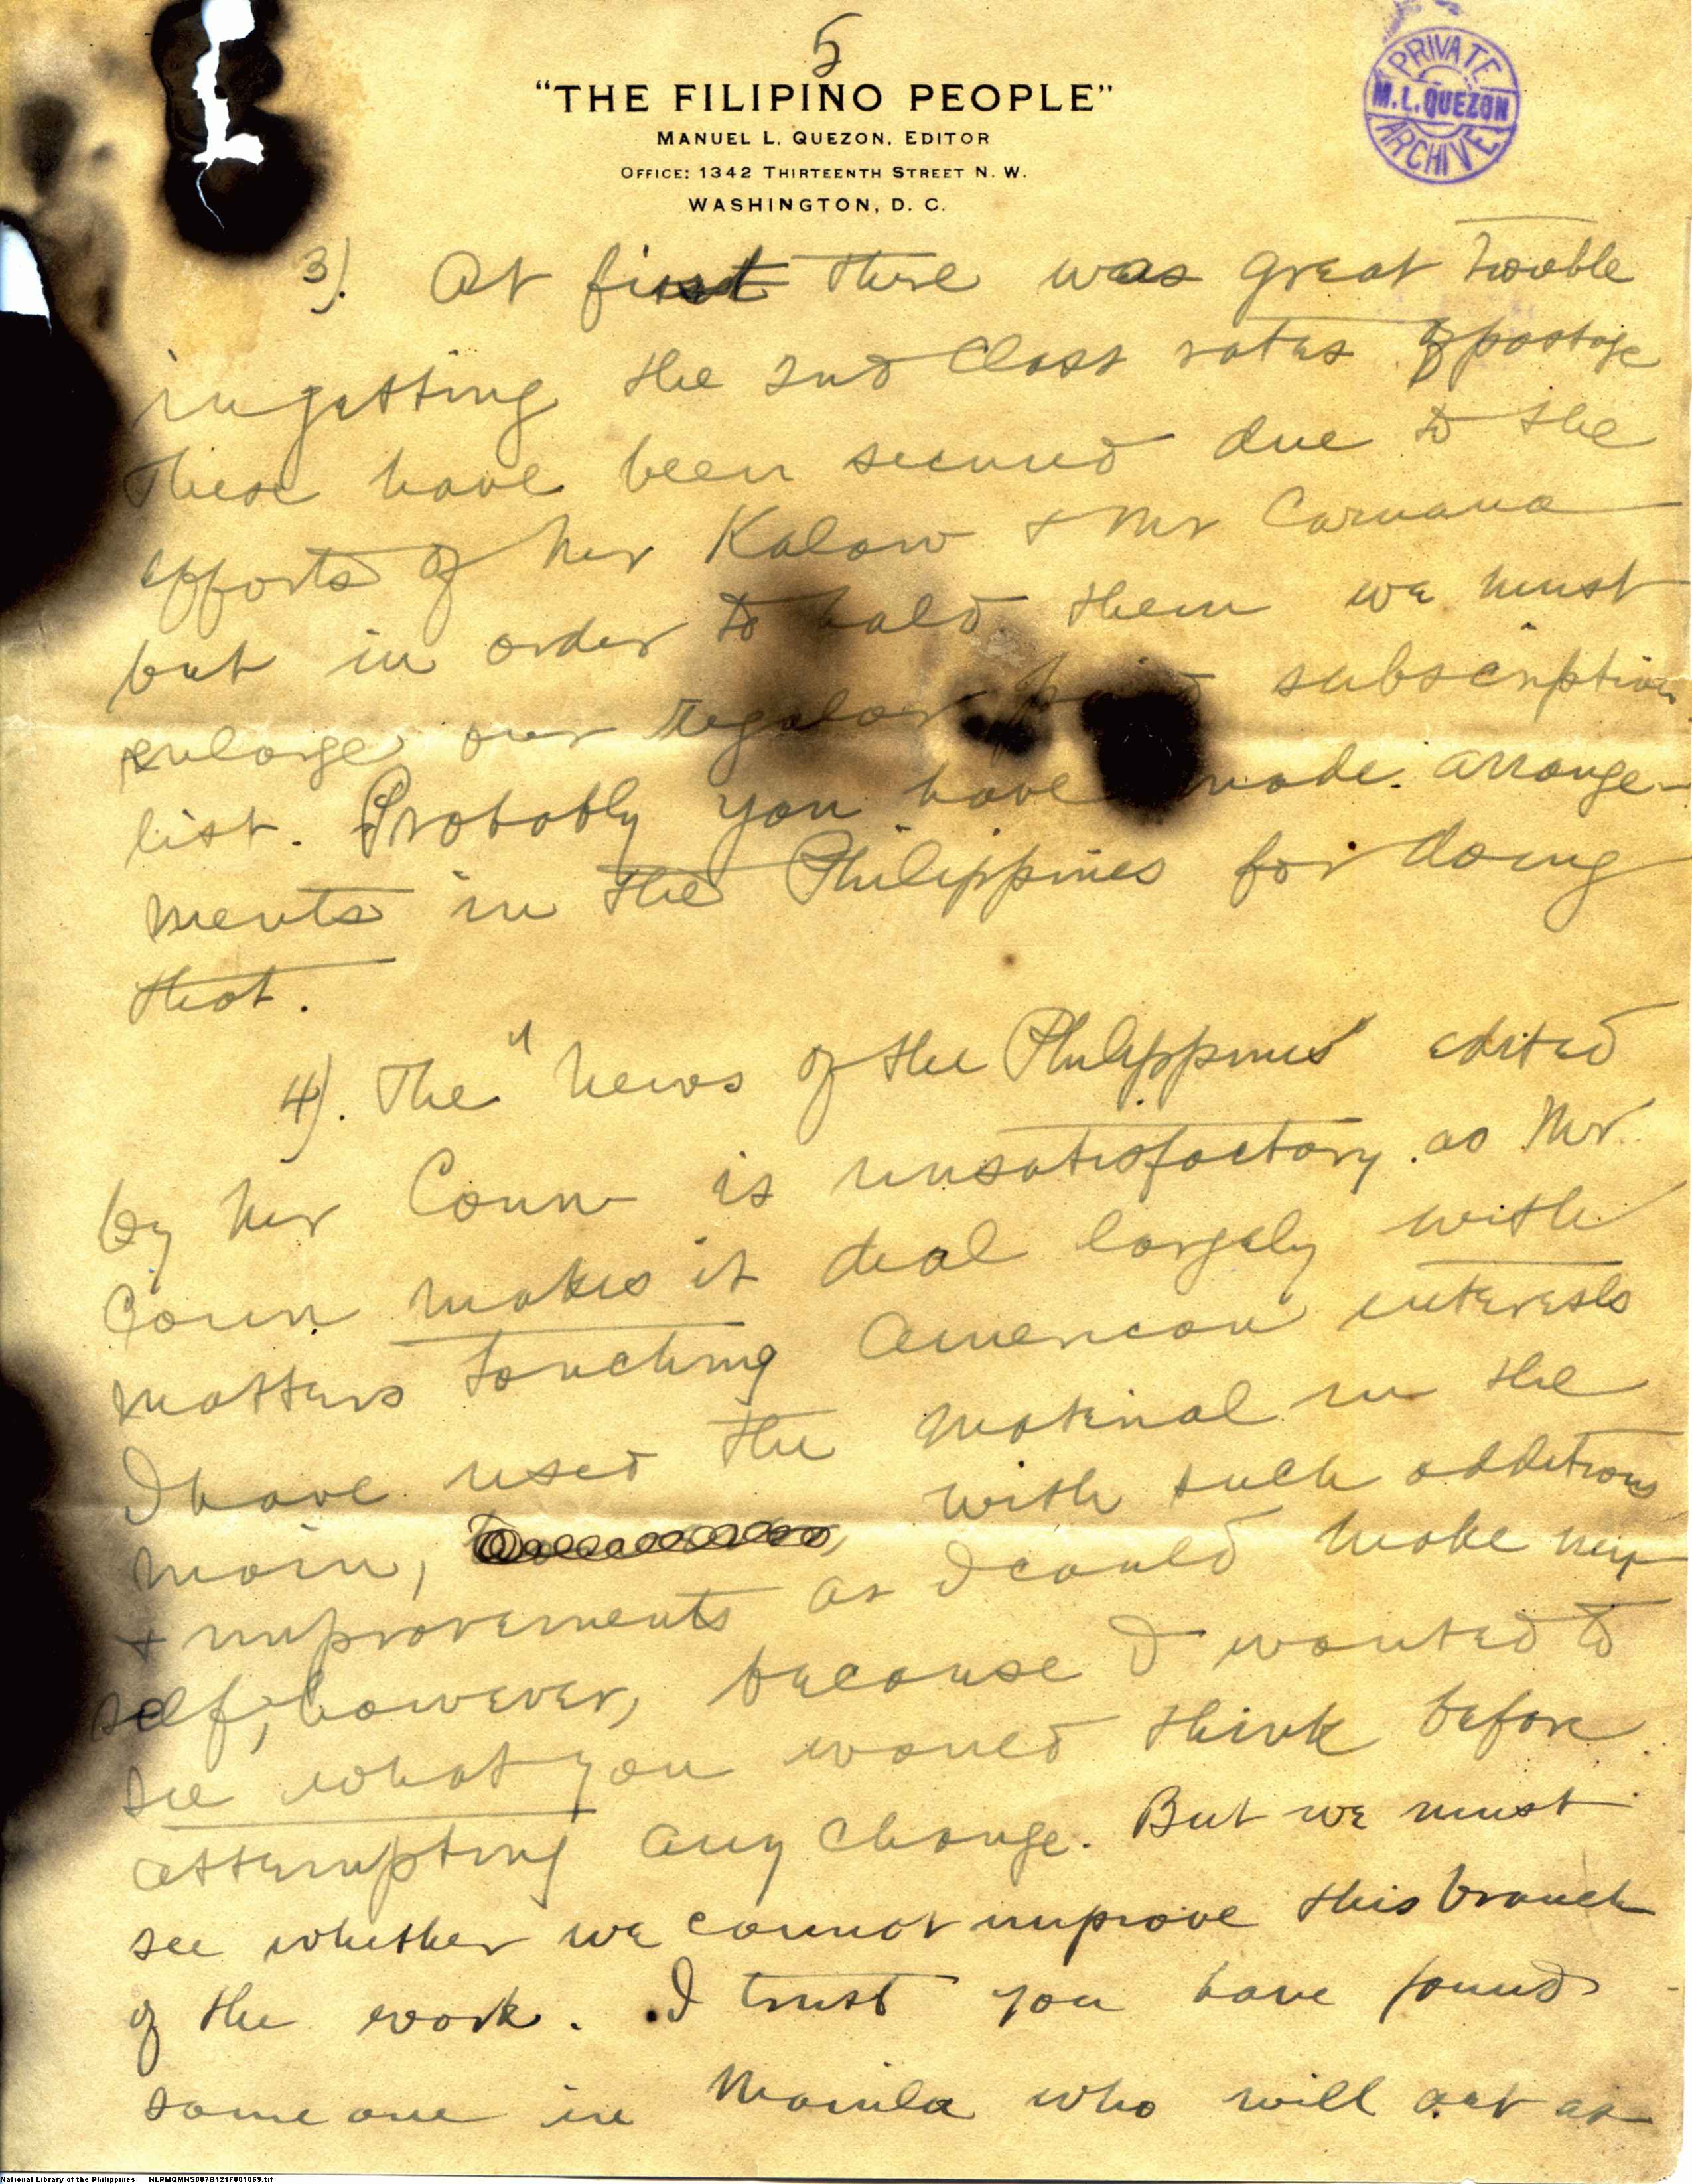 5
"THE FILIPINO PEOPLE"
MANUEL L. QUEZON, EDITOR
OFFICE: 1342 THIRTEENTH STREET N. W.
WASHINGTON, D. C.
PRIVATE
M. L. QUEZON
ARCHIVE
3). At first there was great trouble
in getting the 2nd Class rates of postage
These have been secured due to the
efforts of Mr Kalaw & Mr Caruana
but in order to hold them we must
enlarge our regular paid subscription
list. Probably you have made arrange-
ments in the Philippines for doing
that.
4). The "News of the Philippines" edited
by Mr Conn is unsatisfactory as Mr
Conn makes it deal largely with
matters touching American interests
I have used the material in the
main, with such additions
& improvements as I could make my-
self, however, because I wanted to
see what you would think before
attempting any change. But we must
see whether we cannot improve this branch
of the work. I trust you have found
some one in Manila who will act as
National Library of the Philippines NLPMQMNS007B121F001069.tif